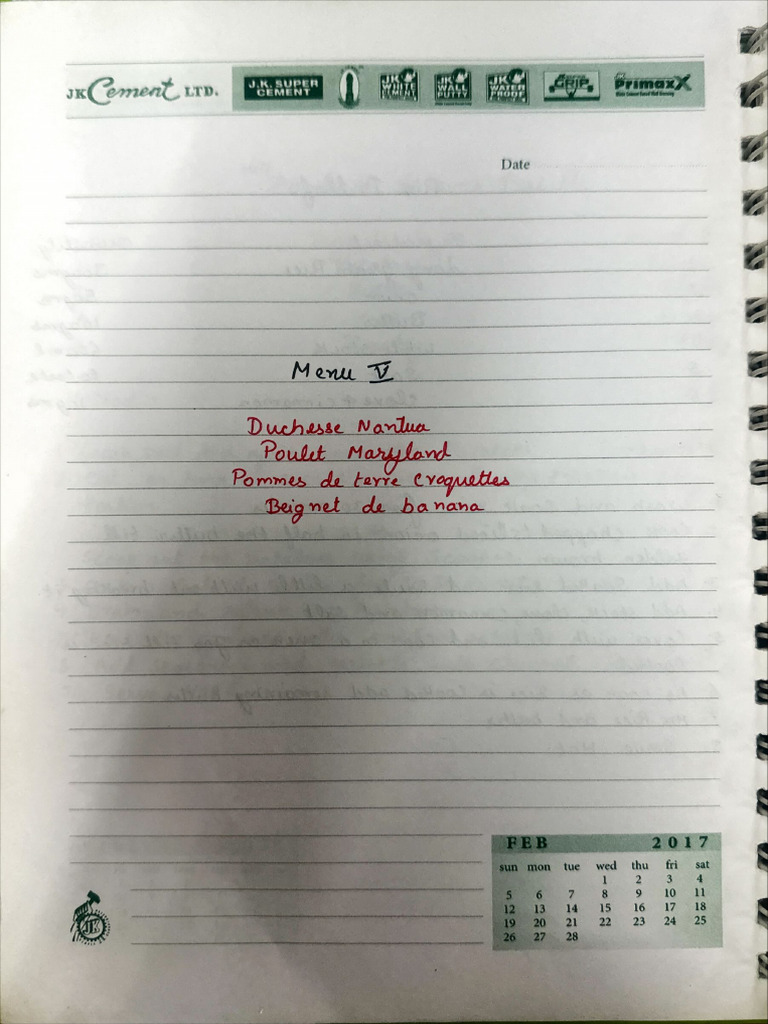 JK Cement LTD.
J.K. SUPER CEMENT
JK WHITE CEMENT
JK WALL PUTTY
JK WATER PROOF
GRIP
JK PrimaxX
Date
Menu V
Duchesse Nantua
Poulet Maryland
Pommes de terre Croquettes
Beignet de banana
FEB 2017
sun mon tue wed thu fri sat
1 2 3 4
5 6 7 8 9 10 11
12 13 14 15 16 17 18
19 20 21 22 23 24 25
26 27 28
JK